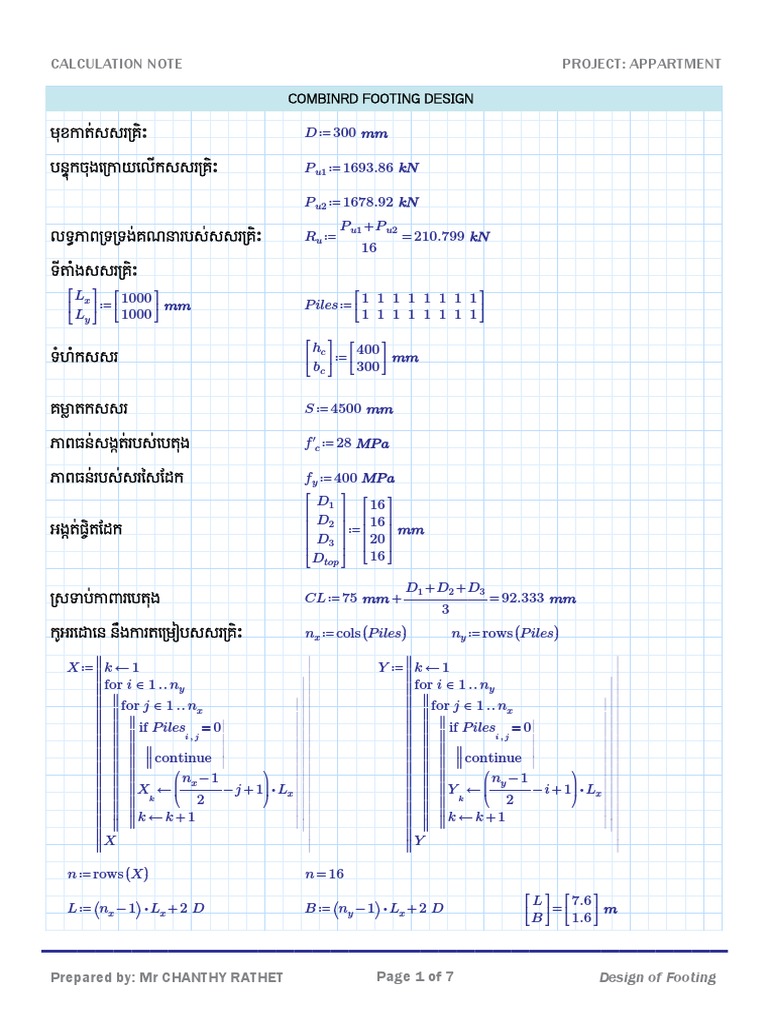 CALCULATION NOTE PROJECT: APPARTMENT
COMBINRD FOOTING DESIGN
មុខកាត់សសរគ្រិះ D:=300 mm
បន្ទុកចុងក្រោយលើកសសរគ្រិះ Pu1:=1693.86 kN
Pu2:=1678.92 kN
លទ្ធភាពទ្រទ្រង់គណនារបស់សសរគ្រិះ Ru:=(Pu1+Pu2)/16=210.799 kN
ទីតាំងសសរគ្រិះ
[Lx Ly]:=[1000 1000] mm Piles:=[1 1 1 1 1 1 1 1; 1 1 1 1 1 1 1 1]
ទំហំកសសរ [hc bc]:=[400 300] mm
គម្លាតកសសរ S:=4500 mm
ភាពធន់សង្កត់របស់បេតុង f'c:=28 MPa
ភាពធន់របស់សរសៃដែក fy:=400 MPa
អង្កត់ផ្ចិតដែក [D1 D2 D3 Dtop]:=[16 16 20 16] mm
ស្រទាប់ការពារបេតុង CL:=75 mm+(D1+D2+D3)/3=92.333 mm
កូអរដោនេ នឹងការតម្រៀបសសរគ្រិះ nx:=cols(Piles) ny:=rows(Piles)
X:= k←1 Y:= k←1
for i∈1..ny for i∈1..ny
for j∈1..nx for j∈1..nx
if Piles i,j=0 if Piles i,j=0
continue continue
Xk←((nx−1)/2−j+1)·Lx Yk←((ny−1)/2−i+1)·Lx
k←k+1 k←k+1
X Y
n:=rows(X) n=16
L:=(nx−1)·Lx+2 D B:=(ny−1)·Lx+2 D [L B]=[7.6 1.6] m
Prepared by: Mr CHANTHY RATHET Page 1 of 7 Design of Footing